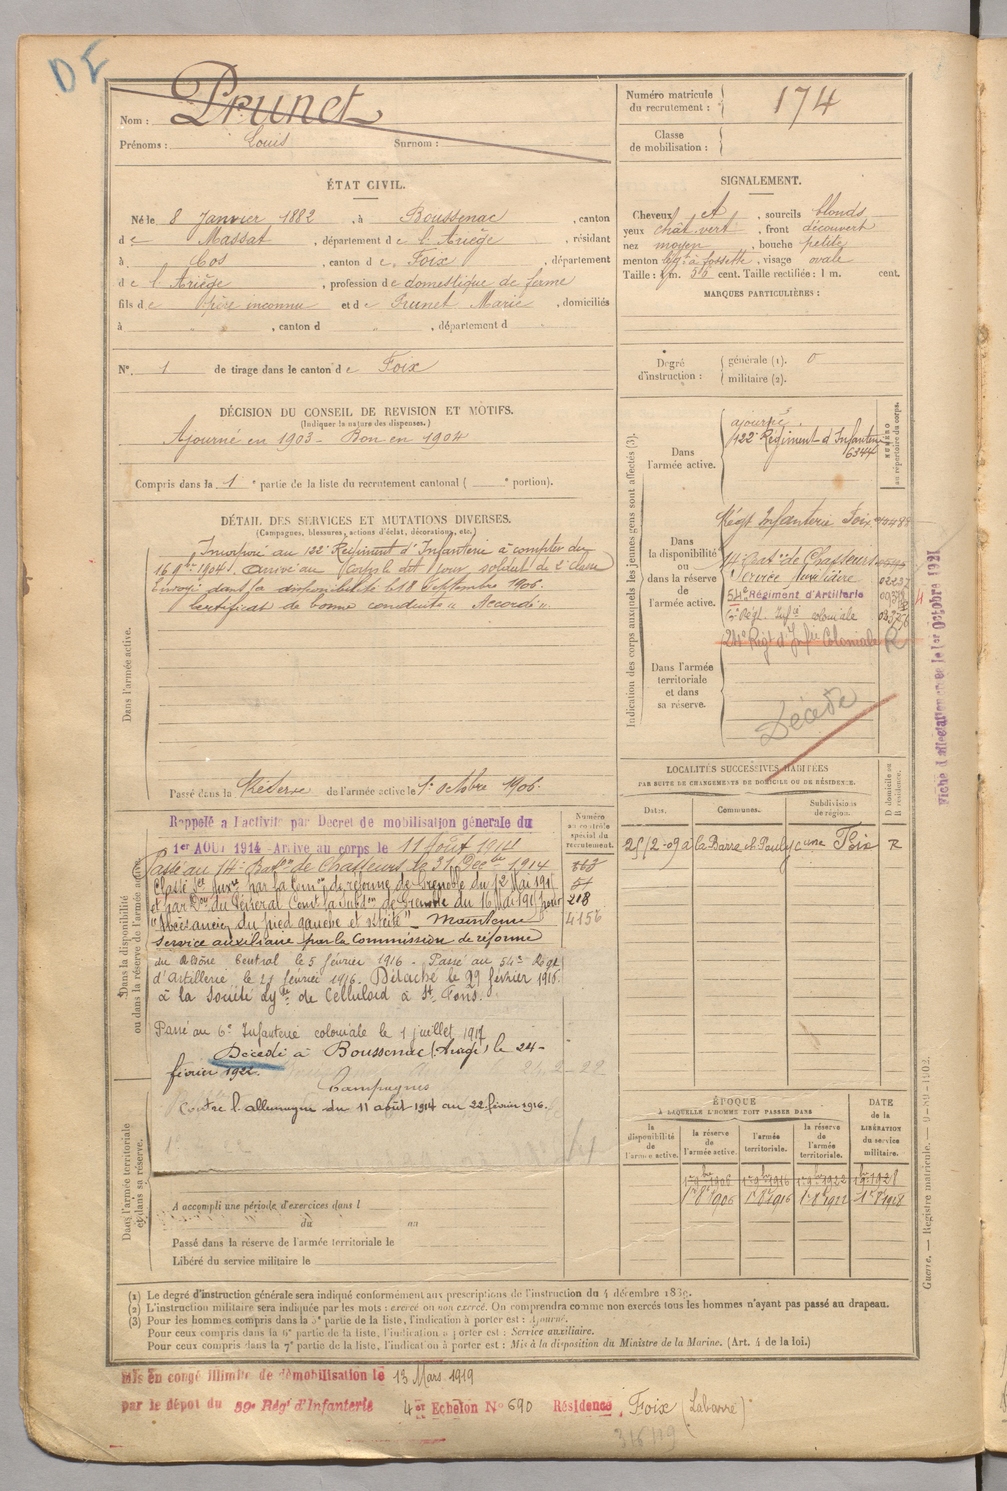 DE
Nom : Prunet
Prénoms : Louis Surnom :
Numéro matricule du recrutement : 174
Classe de mobilisation :
ÉTAT CIVIL.
Né le 8 Janvier 1882, à Boussenac, canton
de Massat, département de l'Ariège, résidant
à Cos, canton de Foix, département
de l'Ariège, profession de domestique de ferme
fils de père inconnu et de Prunet Marie, domiciliés
à " , canton d " , département d
N° 1 de tirage dans le canton de Foix
SIGNALEMENT.
Cheveux et , sourcils blonds
yeux chât. vert , front découvert
nez moyen , bouche petite
menton à fossette , visage ovale
Taille : 1 m. 56 cent. Taille rectifiée : 1 m. cent.
MARQUES PARTICULIÈRES :
Degré d'instruction : générale (1). 0
militaire (2).
DÉCISION DU CONSEIL DE REVISION ET MOTIFS.
(Indiquer la nature des dispenses.)
Ajourné en 1903 - Bon en 1904
Compris dans la 1e partie de la liste du recrutement cantonal ( e portion).
DÉTAIL DES SERVICES ET MUTATIONS DIVERSES.
(Campagnes, blessures, actions d'éclat, décorations, etc.)
Dans l'armée active.
Incorporé au 122e Régiment d'Infanterie à compter du
16 9bre 1904. Arrivé au Corps le dit jour, soldat de 2e classe
Envoyé dans la disponibilité le 18 Septembre 1906.
Certificat de bonne conduite "Accordé".
Passé dans la Réserve de l'armée active le 1er octobre 1906.
Indication des corps auxquels les jeunes gens sont affectés (3).
NUMÉRO au répertoire du corps.
Dans l'armée active.
ajourné.
122e Régiment d'Infanterie
6344
Dans la disponibilité ou dans la réserve de l'armée active.
Régt Infanterie Foix
14e Baton de Chasseurs
Service auxiliaire
54e Régiment d'Artillerie
6e Régt. Infie coloniale
24e Régt d'Infie Coloniale R
Dans l'armée territoriale et dans sa réserve.
Décédé
Fiche d'affectation en date du 1er Octobre 1921
LOCALITÉS SUCCESSIVES HABITÉES
PAR SUITE DE CHANGEMENTS DE DOMICILE OU DE RÉSIDENCE.
Dates. Communes. Subdivisions de région. D domicile ou R résidence.
25/2-09 à la Barre Foix R
Dans la disponibilité ou dans la réserve de l'armée active.
Numéro au contrôle spécial du recrutement.
Rappelé à l'activité par Décret de mobilisation générale du
1er AOUT 1914 - Arrivé au corps le 11 août 1914
Passé au 14e Baton de Chasseurs le 31 Décbre 1914
Classé Ser. Auxre par la Comon de réforme de Grenoble du 12 Mai 1915
et par Don du Général Comt la Subdon de Grenoble du 16 Mai 1915 pour
218
du pied gauche
- Maintenu
4156
service auxiliaire par la Commission de réforme
du Rhône Central le 5 février 1916. Passé au 54e Régt
d'Artillerie le 21 février 1916. Détaché le 22 février 1916
à la Société Lyse de Celluloïd à St Fons.
Passé au 6e Infanterie coloniale le 1 juillet 1917
Décédé à Boussenac (Ariège) le 24-
février 1922.
24-2-22
Campagnes
Contre l'allemagne du 11 août 1914 au 22 février 1916.
Dans l'armée territoriale et dans sa réserve.
A accompli une période d'exercices dans l
du au
Passé dans la réserve de l'armée territoriale le
Libéré du service militaire le
ÉPOQUE
À LAQUELLE L'HOMME DOIT PASSER DANS
la disponibilité de l'armée active. la réserve de l'armée active. l'armée territoriale. la réserve de l'armée territoriale. DATE de la LIBÉRATION du service militaire.
1er 9bre 1908 1er 9bre 1916 1er 9bre 1922 1er 9bre 1928
1er 8bre 1906 1er 8bre 1916 1er 8bre 1922 1er 8bre 1928
Guerre. — Registre matricule. — 9-89-1902.
(1) Le degré d'instruction générale sera indiqué conformément aux prescriptions de l'instruction du 4 décembre 1889.
(2) L'instruction militaire sera indiquée par les mots : exercé ou non exercé. On comprendra comme non exercés tous les hommes n'ayant pas passé au drapeau.
(3) Pour les hommes compris dans la 5e partie de la liste, l'indication à porter est : Ajourné.
Pour ceux compris dans la 6e partie de la liste, l'indication à porter est : Service auxiliaire.
Pour ceux compris dans la 7e partie de la liste, l'indication à porter est : Mis à la disposition du Ministre de la Marine. (Art. 4 de la loi.)
Mis en congé illimité de démobilisation le 13 Mars 1919
par le dépôt du 59e Régt d'Infanterie 4e Echelon N° 690 Résidence Foix (Labarre)